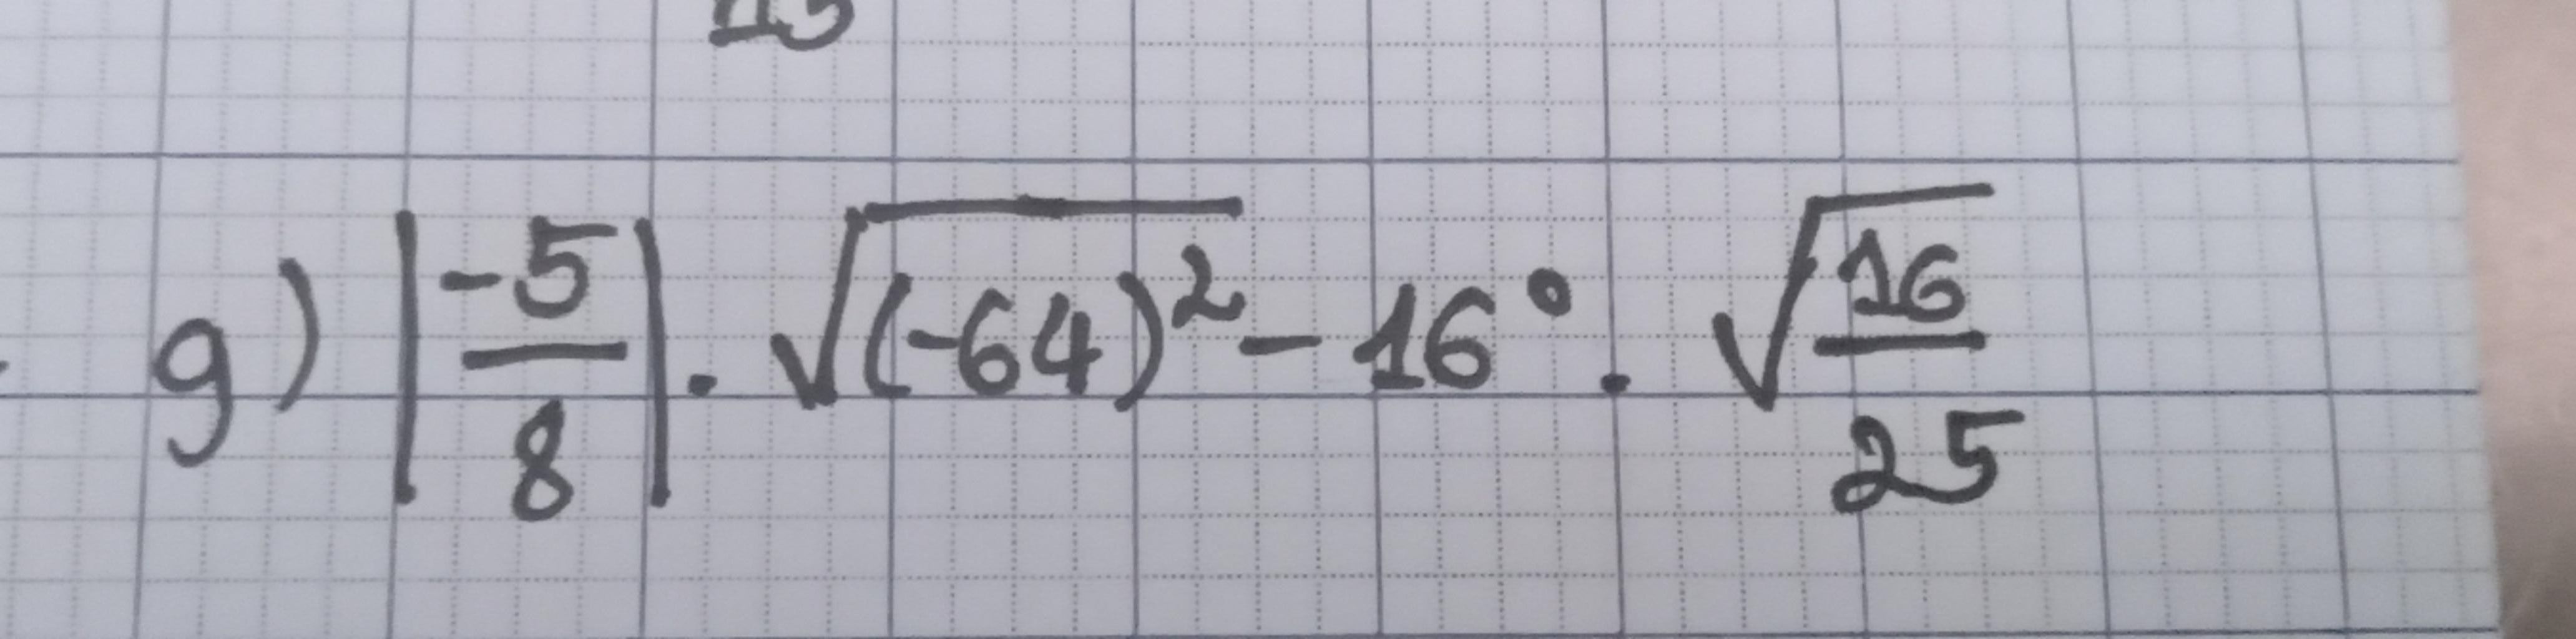 g) |-5/8| . √(-64)² - 16⁰ . √16/25